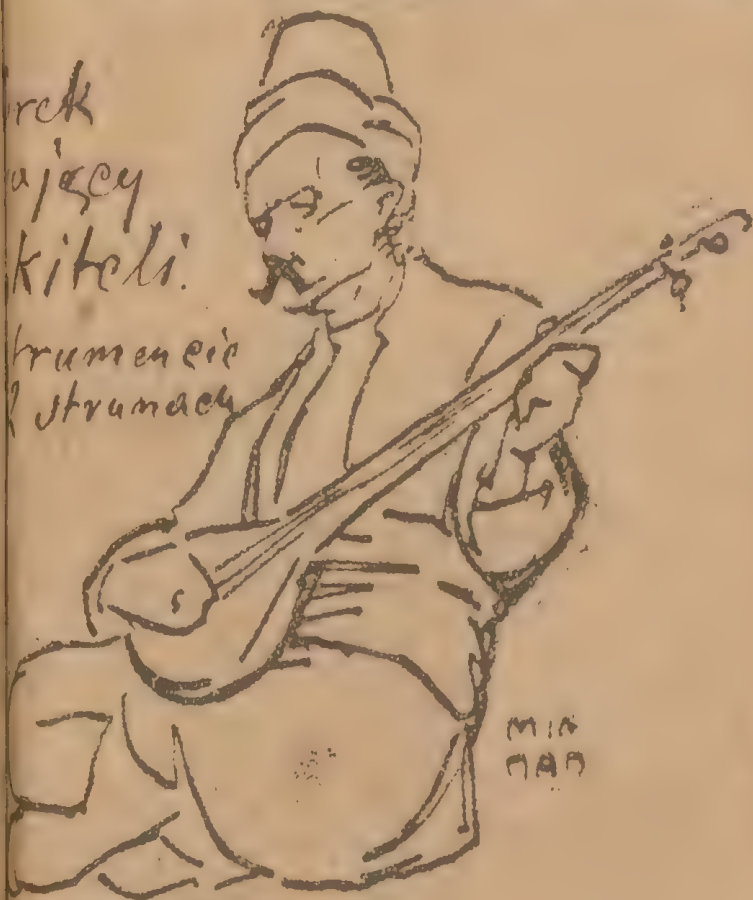 rek
ający
kiteli.
trumencie
strunach